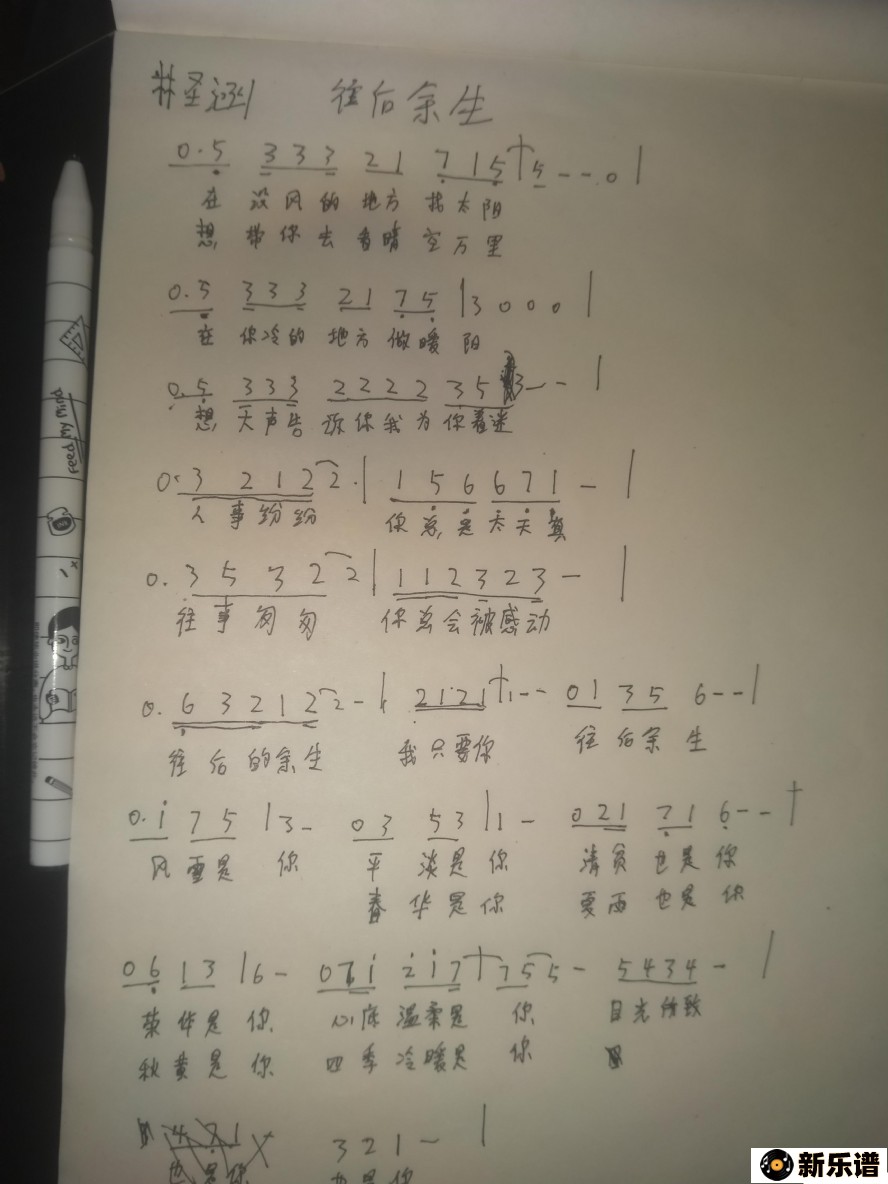 林圣涵 往后余生
0.5 333 21 715 | 5 - - 0 |
在 没风的 地方 找太阳
想 带你去 看晴空万里
0.5 333 21 75 | 3 0 0 0 |
在 你冷的 地方 做暖阳
0.5 333 2222 35 3 - - |
想 大声告 诉你我为 你着迷
0. 3 2 1 2 2 . | 1 5 6 6 7 1 - |
人事纷纷 你总是太天真
0. 3 5 3 2 2 | 1 1 2 3 2 3 - |
往事匆匆 你总会被感动
0. 6 3 2 1 2 2 - | 2121 | 1 - - 01 35 6 - - |
往后的余生 我只要你 往后余生
0. i 7 5 | 3 - 03 53 | 1 - 021 71 6 - - |
风雪是你 平淡是你 清贫也是你
春华是你 夏雨也是你
06 13 | 6 - 071 217 | 75 5 - 5434 - |
荣华是你 心底温柔是你 目光所致
秋黄是你 四季冷暖是你
471 321 - |
也是你 也是你
feed my mind
新乐谱